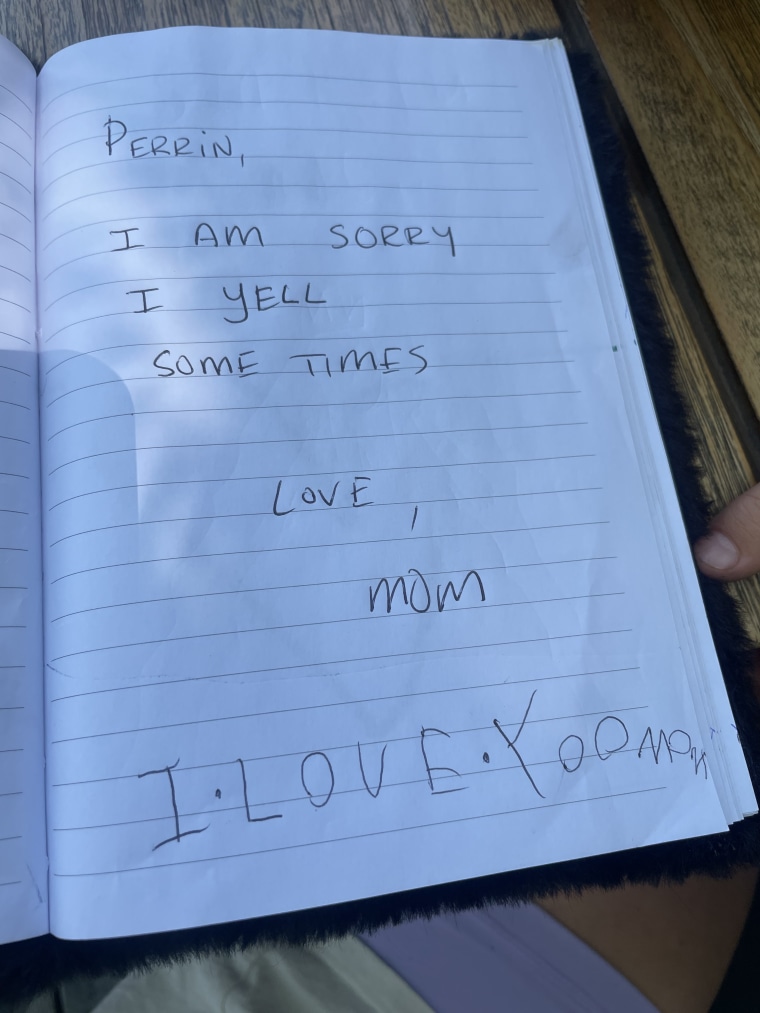 PERRiN,
I AM SORRY
I YELL
SOME TIMES
LOVE,
MOM
I·LOVE·YOO MOM